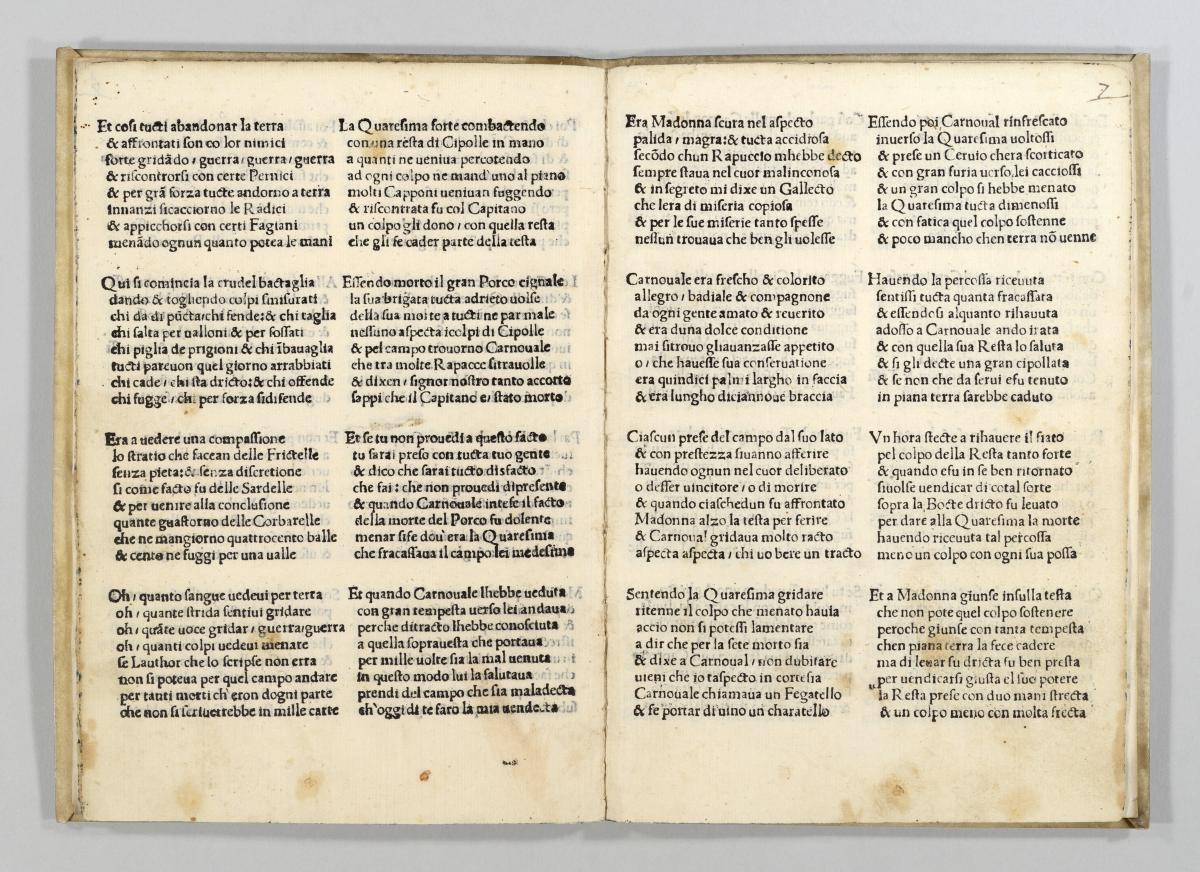 Et cosi tucti abandonar la terra
& affrontati son co lor nimici
forte gridādo / guerra / guerra / guerra
& riscontrorsi con certe Pernici
& per grā forza tucte andorno a terra
innanzi sicacciorno le Radici
& appicchorsi con certi Fagiani
menādo ognun quanto potea le mani
Qui si comincia la crudel bactaglia
dando & togliendo colpi smisurati
chi da di pūcta / chi fende: & chi taglia
chi salta per ualloni & per fossati
chi piglia de prigioni & chi ībauaglia
tucti pareuon quel giorno arrabbiati
chi cade / chi sta dricto: & chi offende
chi fugge / chi per forza sidifende
Era a uedere una compassione
lo stratio che facean delle Frictelle
senza pieta: & senza discretione
si come facto fu delle Sardelle
& per uenire alla conclusione
quante guastorno delle Corbarelle
che ne mangiorno quattrocento balle
& cento ne fuggi per una ualle
Oh / quanto sangue uedeui per terra
oh / quante strida sentiui gridare
oh / quāte uoce gridar / guerra / guerra
oh / quanti colpi uedeui menare
se Lauthor che lo scripse non erra
non si poteua per quel campo andare
per tanti morti ch'eron dogni parte
che non si scriuerrebbe in mille carte
La Quaresima forte combactendo
con una resta di Cipolle in mano
a quanti ne ueniua percotendo
ad ogni colpo ne mand'uno al piano
molti Capponi ueniuan fuggendo
& riscontrata fu col Capitano
un colpo gli dono / con quella resta
che gli fe cader parte della testa
Essendo morto il gran Porco cignale
la sua brigata tucta adrieto uolse
della sua morte a tucti ne par male
nessuno aspecta icolpi di Cipolle
& pel campo trouorno Carnouale
che tra molte Rapacce sitrauolle
& dixen / signor nostro tanto accotto
sappi che il Capitano e / stato morto
Et se tu non prouedi a questo facto
tu sarai preso con tucta tuo gente
& dico che sarai tucto disfacto
che fai: che non prouedi dipresente
& quando Carnouale intese il facto
della morte del Porco fu dolente
menar sife dou'era la Quaresima
che fracassaua il campo lei medesima
Et quando Carnouale lhebbe ueduta
con gran tempesta uerso lei andaua
perche ditracto lhebbe conosciuta
a quella soprauesta che portaua
per mille uolte sia la mal uenuta
in questo modo lui la salutaua
prendi del campo che sia maladecta
ch'oggi di te faro la mia uendecta
7
Era Madonna scura nel aspecto
palida / magra: & tucta accidiosa
secōdo chun Rapuccio mhebbe decto
sempre staua nel cuor malinconosa
& in segreto mi dixe un Gallecto
che lera di miseria copiosa
& per le sue miserie tanto spesse
nessun trouaua che ben gli uolesse
Carnouale era frescho & colorito
allegro / badiale & compagnone
da ogni gente amato & reuerito
& era duna dolce conditione
mai sitrouo gliauanzasse appetito
o / che hauesse sua conseruatione
era quindici palmi largho in faccia
& era lungho diciannoue braccia
Ciascun prese del campo dal suo lato
& con prestezza siuanno afferire
hauendo ognun nel cuor deliberato
o desser uincitore / o di morire
& quando ciaschedun fu affrontato
Madonna alzo la testa per ferire
& Carnoual gridaua molto racto
aspecta aspecta / chi uo bere un tracto
Sentendo la Quaresima gridare
ritenne il colpo che menato hauia
accio non si potessi lamentare
a dir che per la sete morto sia
& dixe a Carnoual / non dubitare
uieni che io taspecto in cortesia
Carnouale chiamaua un Fegatello
& fe portar di uino un charatello
Essendo poi Carnoual rinfrescato
inuerso la Quaresima uoltossi
& prese un Ceruio chera scorticato
& con gran furia uerso lei cacciossi
& un gran colpo si hebbe menato
la Quaresima tucta dimenossi
& con fatica quel colpo sostenne
& poco mancho chen terra nō uenne
Hauendo la percossa riceuuta
sentissi tucta quanta fracassata
& essendosi alquanto rihauuta
adosso a Carnouale ando irata
& con quella sua Resta lo saluta
& si gli decte una gran cipollata
& se non che da serui efu tenuto
in piana terra sarebbe caduto
Vn hora stecte a rihauere il fiato
pel colpo della Resta tanto forte
& quando efu in se ben ritornato
siuolse uendicar di cotal sorte
sopra la Bocte dricto fu leuato
per dare alla Quaresima la morte
hauendo riceuuta tal percossa
meno un colpo con ogni sua possa
Et a Madonna giunse insulla testa
che non pote quel colpo sostenere
peroche giunse con tanta tempesta
chen piana terra la fece cadere
ma di leuar fu dricta fu ben presta
per uendicarsi giusta el suo potere
la Resta prese con duo mani strecta
& un colpo meno con molta frecta